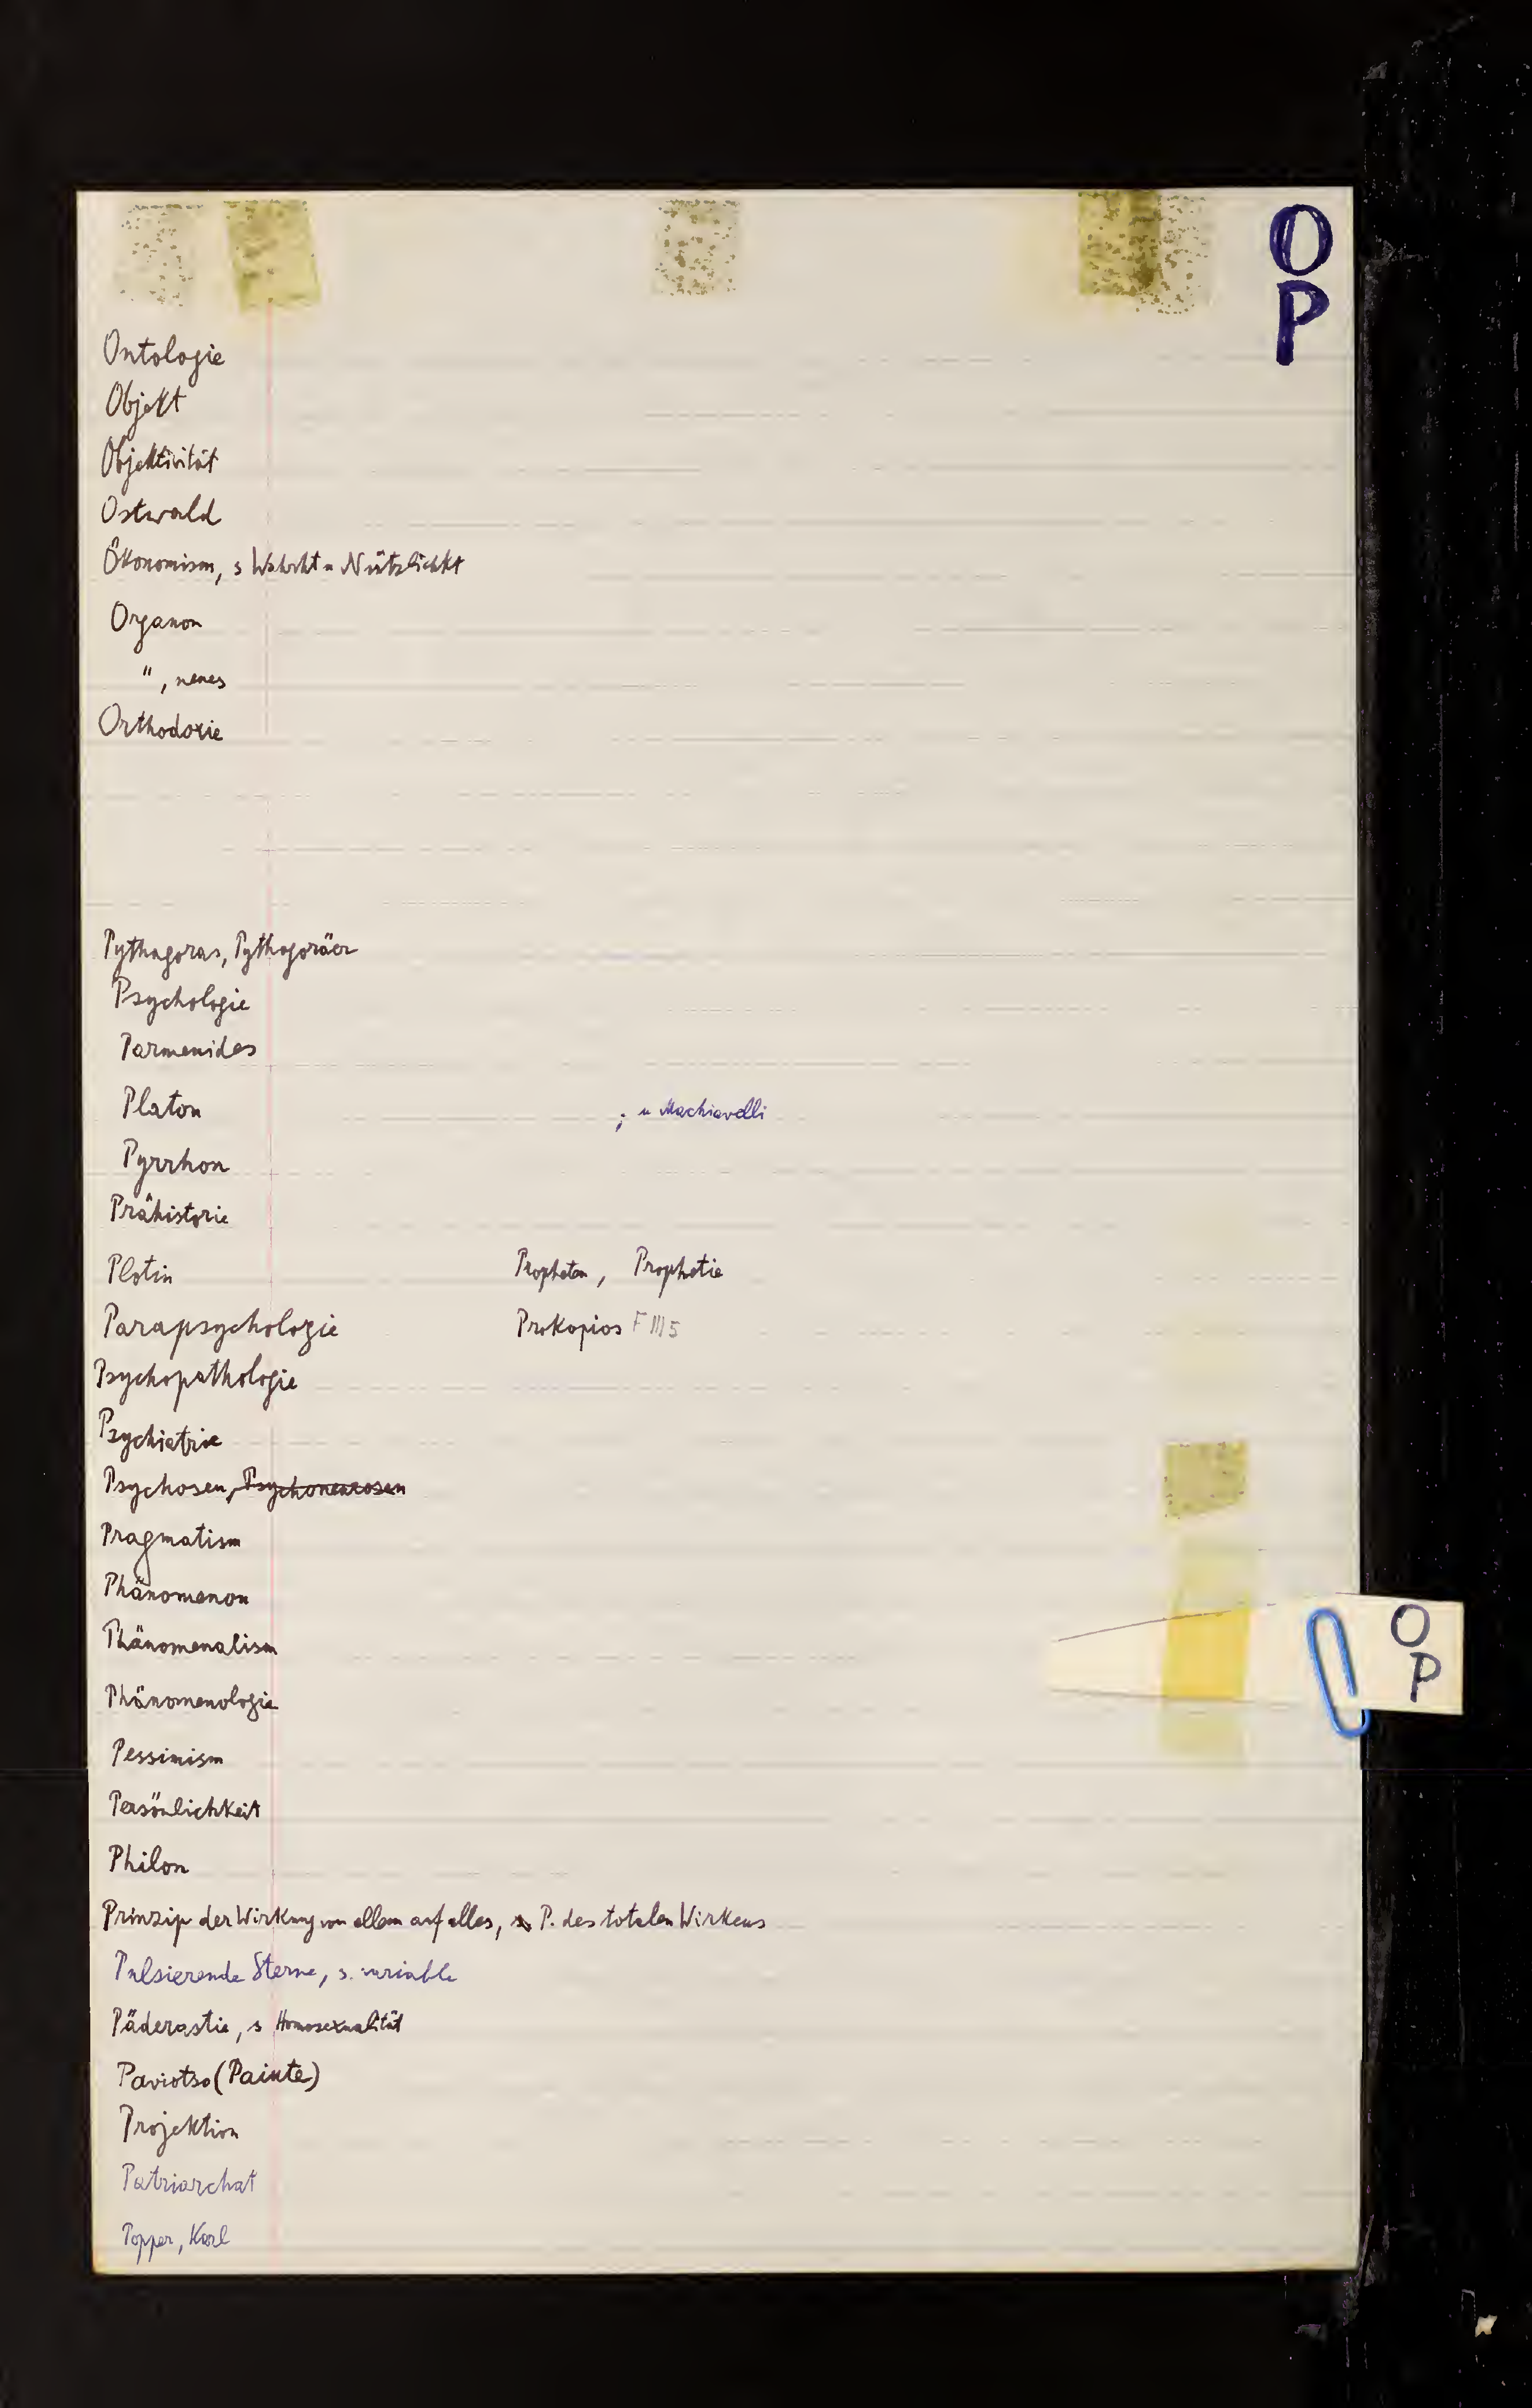 O
P
Ontologie
Objekt
Objektivität
Ostwald
Ökonomism, s Wahrht u Nützlichkt
Organon
", neues
Orthodoxie
Pythagoras, Pythagoräer
Psychologie
Parmenides
Platon ; u Machiavelli
Pyrrhon
Prähistorie
Plotin Propheten, Prophetie
Parapsychologie Prokopios F III 5
Psychopathologie
Psychiatrie
Psychosen, Psychoneurosen
Pragmatism
Phänomenon
Phänomenalism
Phänomenologie
Pessimism
Persönlichkeit
Philon
Prinzip der Wirkung von allem auf alles, s P. des totalen Wirkens
Pulsierende Sterne, s. variable
Päderastie, s Homosexualität
Paviotso (Paiute)
Projektion
Patriarchat
Popper, Karl
O
P